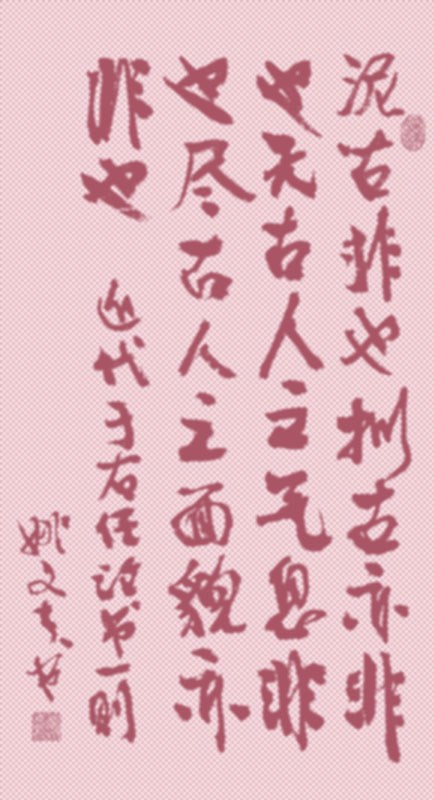 泥古非也拟古亦非
也无古人之气息非
也尽古人之面貌亦
非也 近代于右任论书一则
姚文